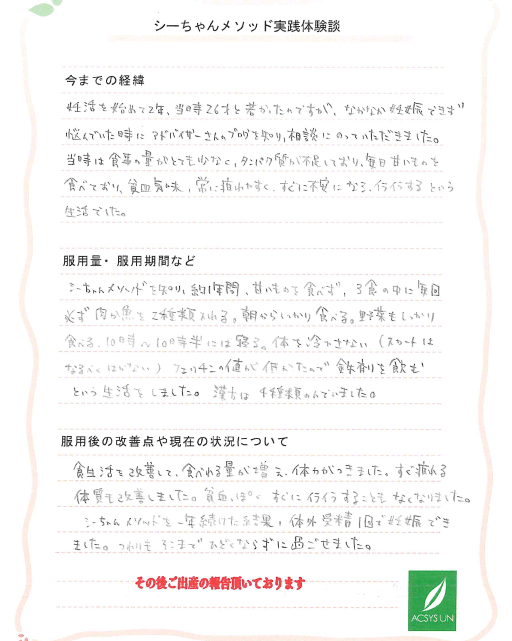 シーちゃんメソッド実践体験談
今までの経緯
妊活を始めて2年、当時26才と若かったのですが、なかなか妊娠できず
悩んでいた時にアドバイザーさんのブログを知り、相談にのっていただきました。
当時は食事の量がとても少なく、タンパク質が不足しており、毎日甘いものを
食べており、貧血気味、常に疲れやすく、すぐに不安になる、イライラするという
生活でした。
服用量・服用期間など
シーちゃんメソッドを知り、約1年間、甘いものを食べず、3食の中に毎回
必ず肉か魚を2種類入れる。朝からしっかり食べる。野菜もしっかり
食べる、10時～10時半には寝る。体を冷やさない(スカートは
なるべくはかない) フェリチンの値が低かったので鉄剤を飲む
という生活をしました。漢方は4種類のんでいました。
服用後の改善点や現在の状況について
食生活を改善して、食べれる量が増え、体力がつきました。すぐ疲れる
体質も改善しました。貧血っぽく すぐにイライラすることもなくなりました。
シーちゃんメソッドを一年続けた結果、体外受精1回で妊娠でき
ました。つわりもそこまでひどくならずに過ごせました。
その後ご出産の報告頂いております
ACSYS UN